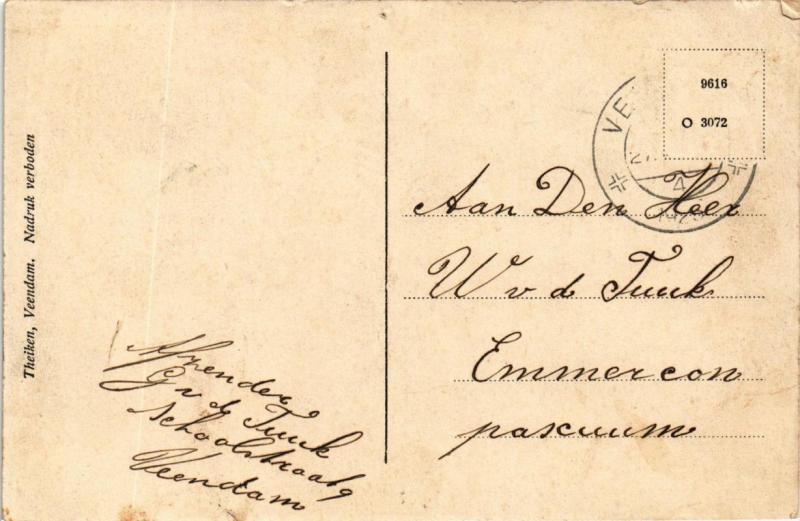 Theiken, Veendam. Nadruk verboden
9616
O 3072
VE
4
Aan Den Heer
W v d Tuuk
Emmercon
pascuum
Afzender
G v d Tuuk
Schoolstraat 9
Veendam